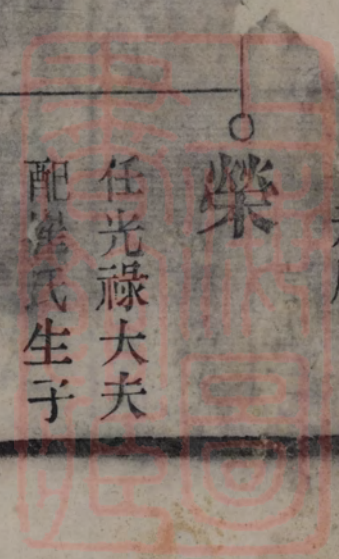 榮
任光祿大夫
配崔氏生子